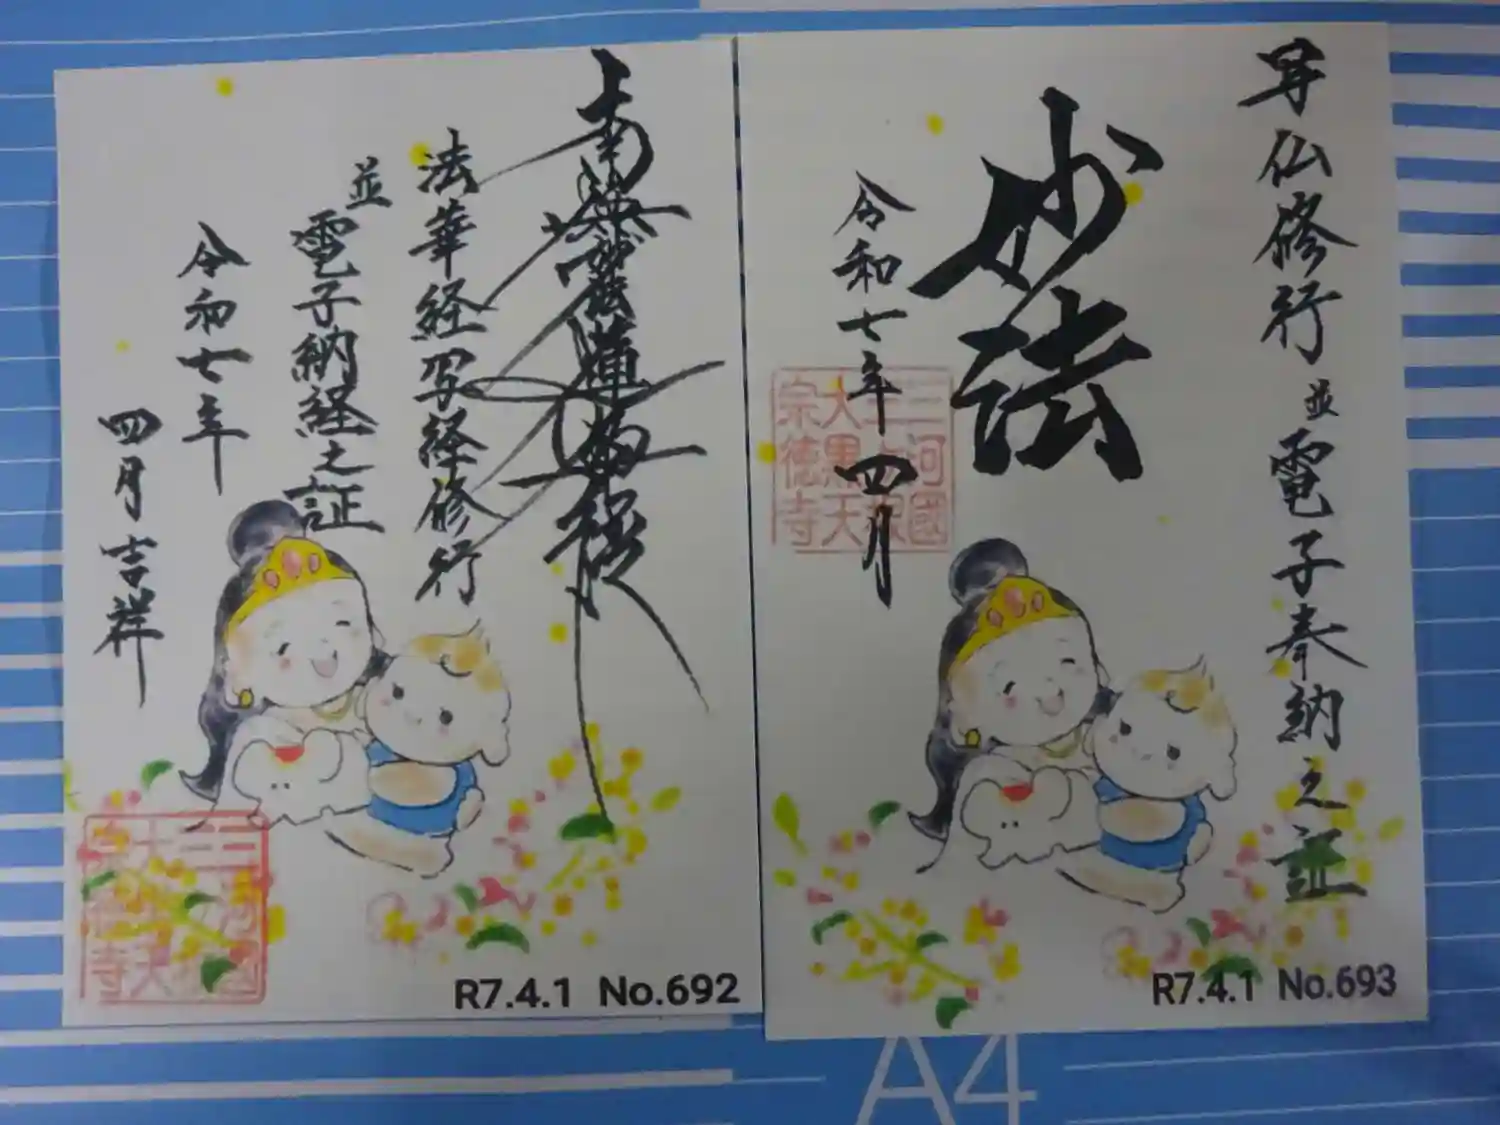 南無妙法蓮華経
法華経写経修行
並電子納経之証
令和七年
四月吉祥
R7.4.1 No.692
写仏修行並電子奉納之証
妙法
令和七年四月
三河國
大黒天
宗徳寺
R7.4.1 No.693
A4